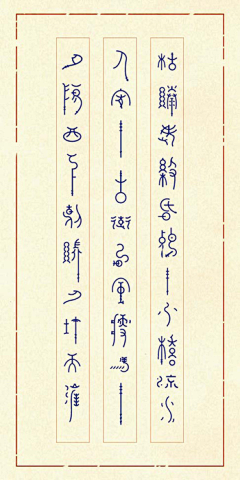 枯藤老樹昏鴉小橋流水
人家古道西風瘦馬
夕陽西下斷腸人在天涯